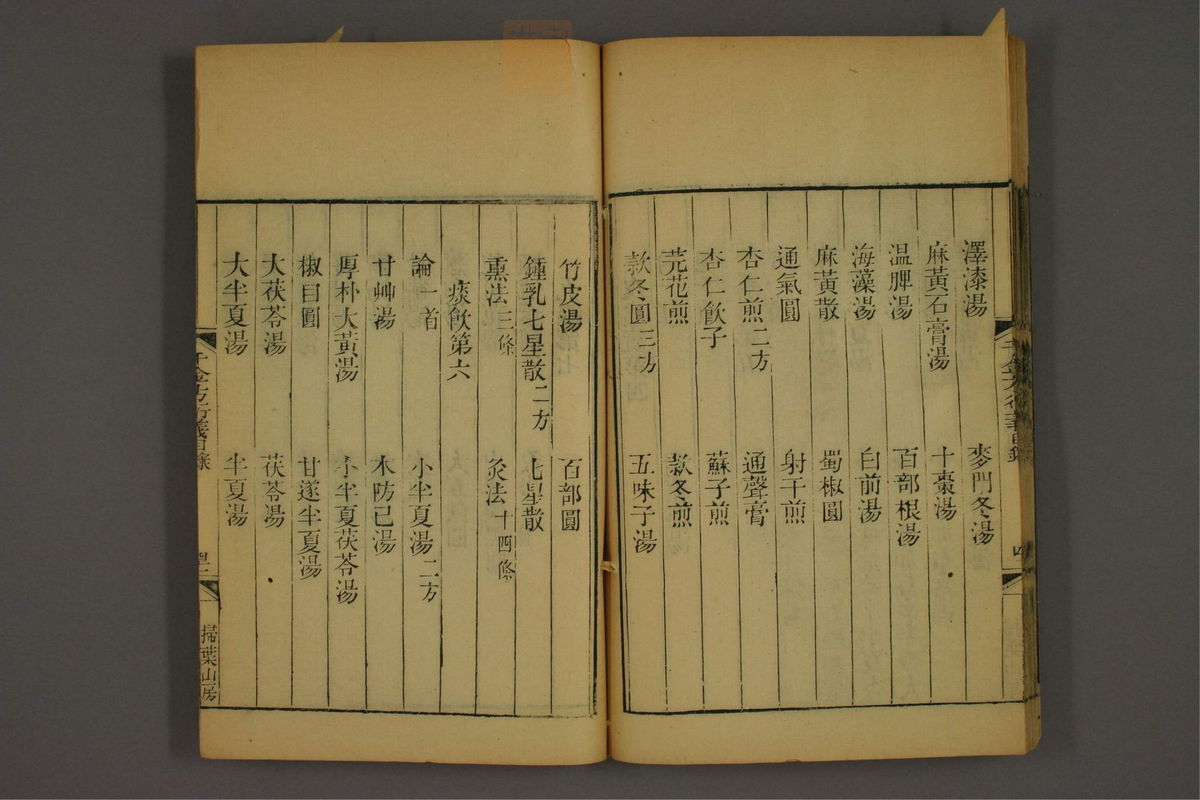 澤漆湯 麥門冬湯
麻黃石膏湯 十棗湯
温脾湯 百部根湯
海藻湯 白前湯
麻黃散 蜀椒圓
通氣圓 射干煎
杏仁煎二方 通聲膏
杏仁飲子 蘇子煎
芫花煎 款冬煎
款冬圓三方 五味子湯
竹皮湯 百部圓
鍾乳七星散二方 七星散
熏法三條 灸法十四條
痰飲第六
論一首 小半夏湯二方
甘艸湯 木防已湯
厚朴大黃湯 小半夏茯苓湯
椒目圓 甘遂半夏湯
大茯苓湯 茯苓湯
大半夏湯 半夏湯
千金方衍義目錄
掃葉山房